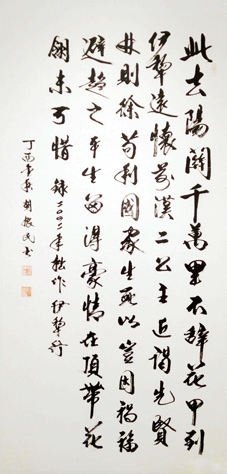 此去陽關千萬里不辭花甲到
伊犁遠懷蒙漢二公主近謁先賢
林則徐苟利國家生死以豈因禍福
避趨之平生留得豪情在頂帶花
翎未可惜 錄二〇〇二年拙作伊犁行
丁酉年 胡 民書